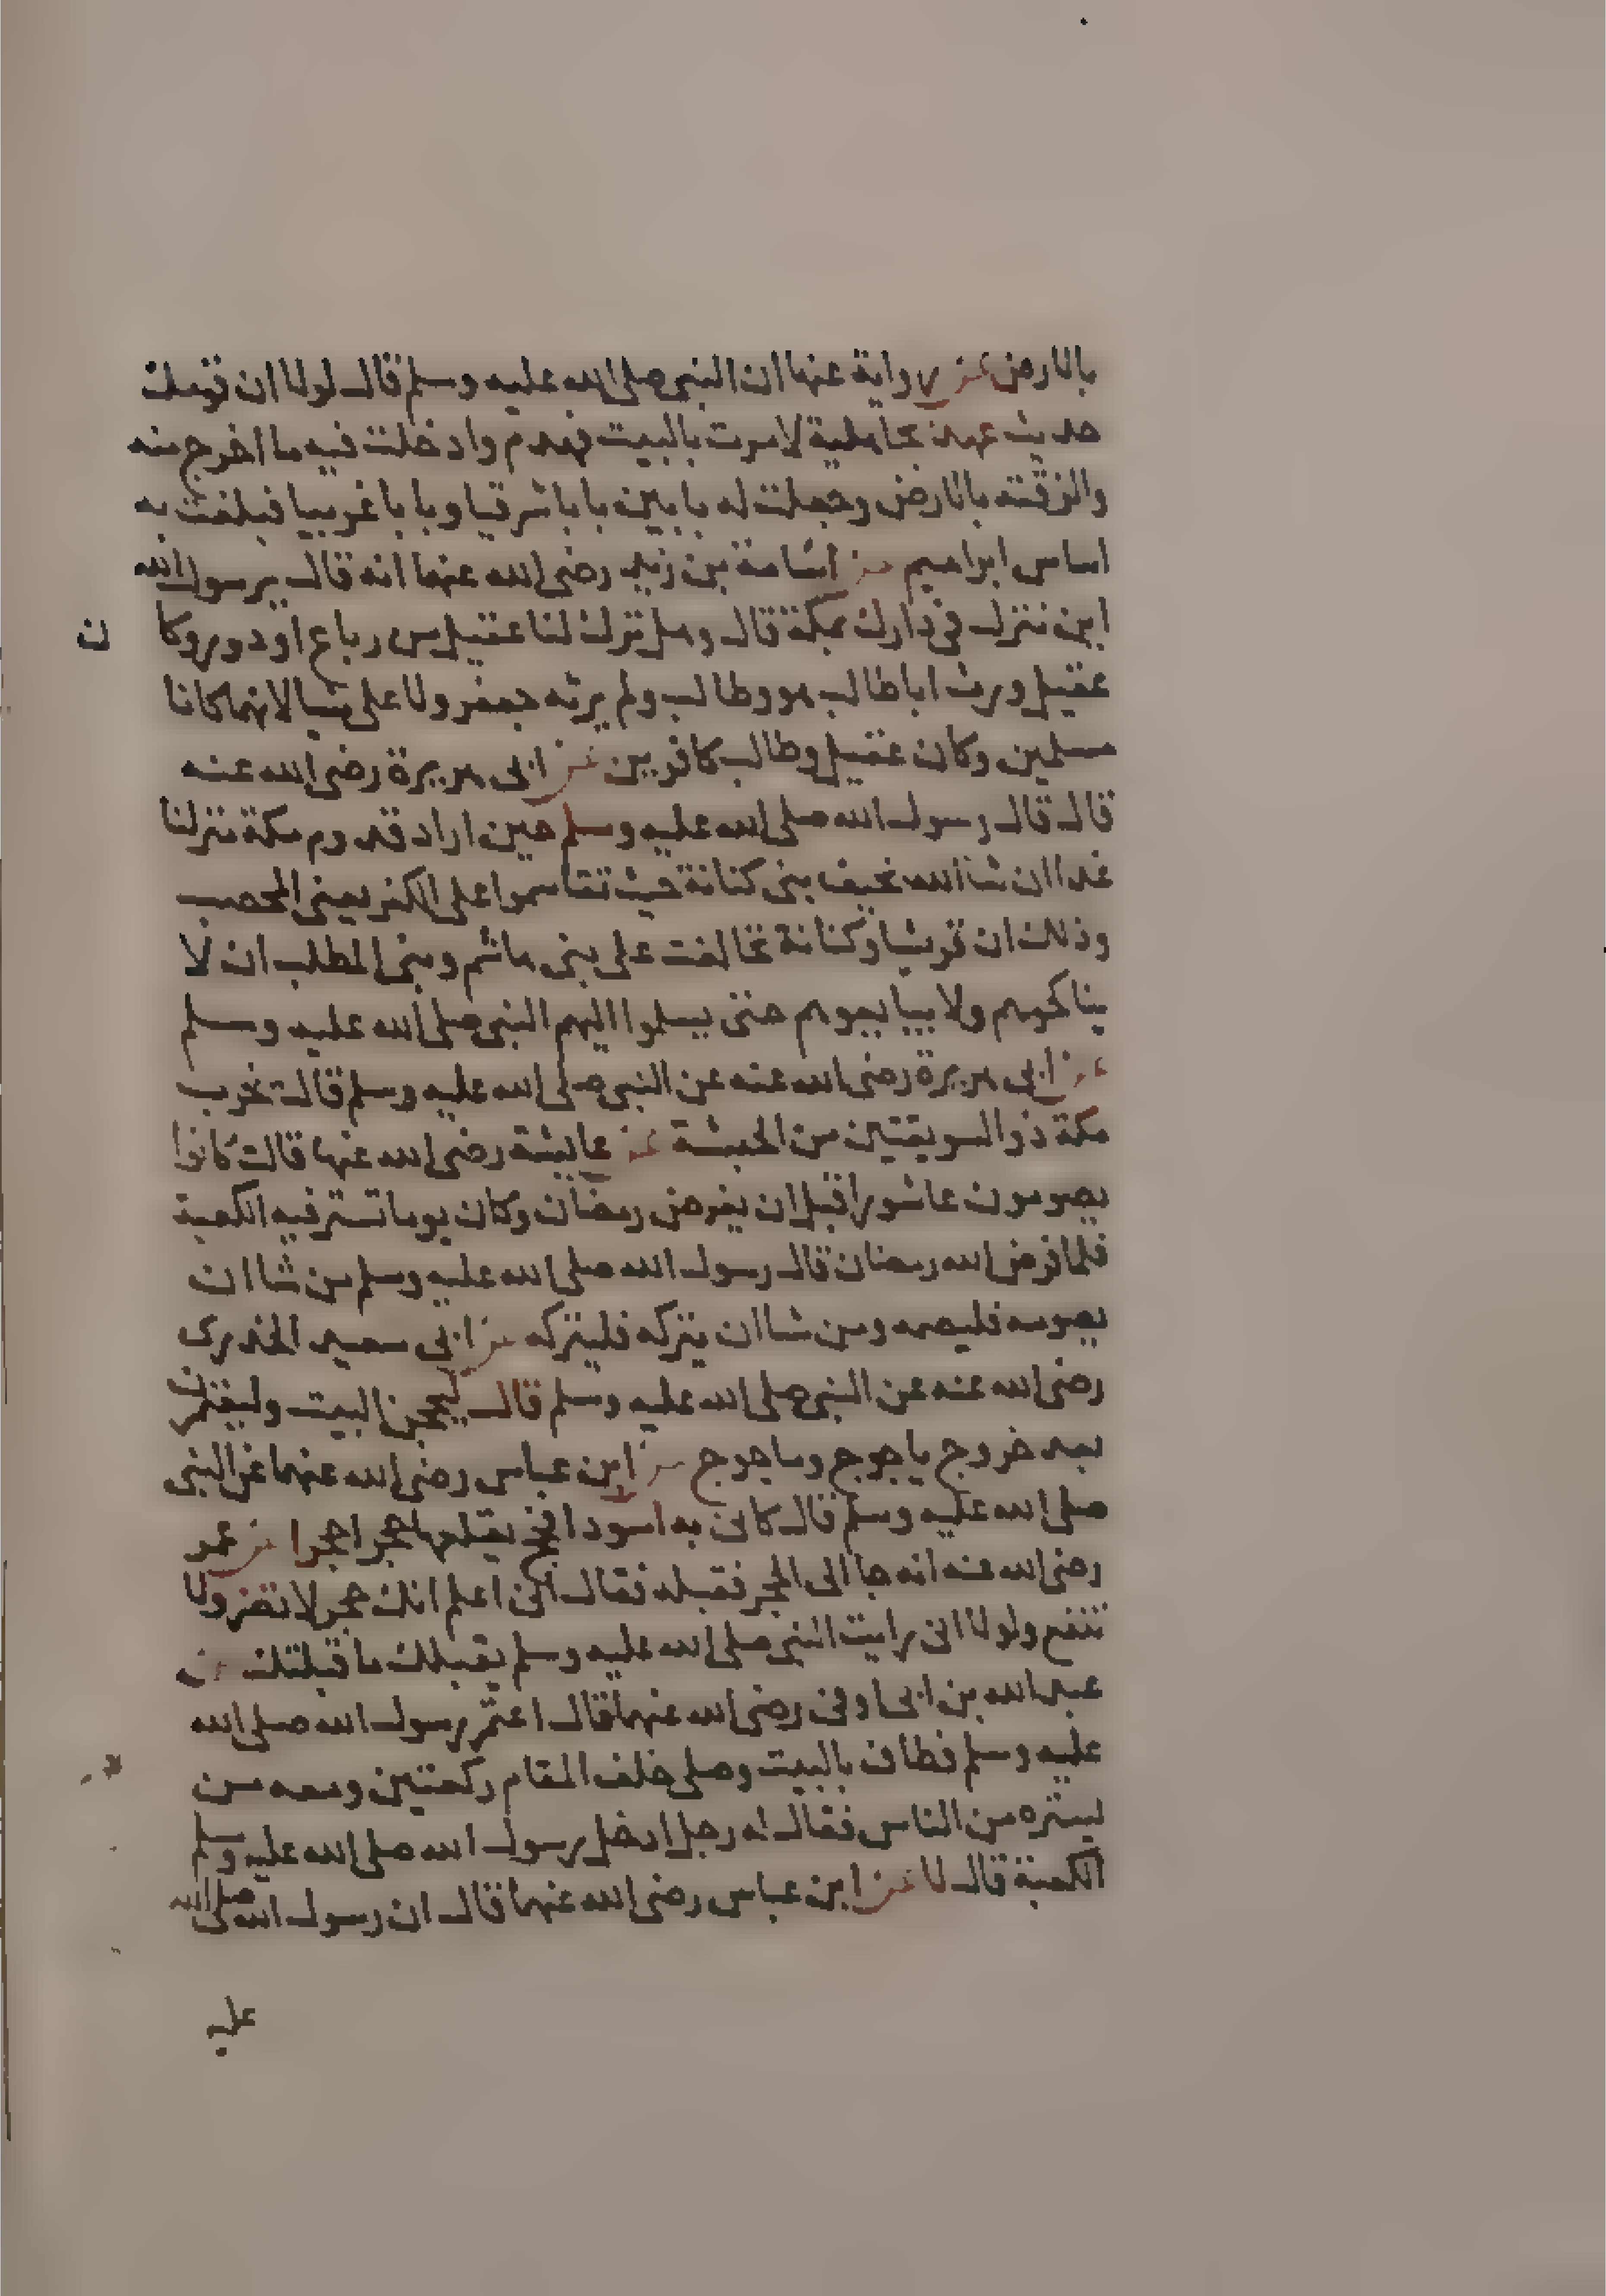 بالارض عن رواية عنها ان النبي صلى الله عليه وسلم قال لولا ان قومك
حديث عهد بجاهلية لامرت بالبيت فهدم وادخلت فيه ما اخرج منه
والزقته بالارض وجعلت له بابين بابا شرقيا وبابا غربيا فبلغت به
اساس ابراهيم عن اسامة بن زيد رضى الله عنهما انه قال يرسول الله
اين تنزل فى دارك بمكة قال وهل ترك لنا عقيل من رباع او دور وكا
ن
عقيل ورث ابا طالب هو وطالب ولم يرثه جعفر ولا على شيا لانهما كانا
مسلمين وكان عقيل وطالب كافرين عن ابى هريرة رضى الله عنه
قال قال رسول الله صلى الله عليه وسلم حين اراد قدوم مكة منزلنا
غدا ان شا الله بخيف بنى كنانة حيث تقاسموا على الكفر يعنى المحصب
وذلك ان قريشا وكنانة تحالفت على بنى هاشم وبنى المطلب ان لا
يناكحوهم ولا يبايعوهم حتى يسلموا اليهم النبى صلى الله عليه وسلم
عن ابى هريرة رضى الله عنه عن النبى صلى الله عليه وسلم قالت تخرب
مكة ذو السويقتين من الحبشة عن عايشة رضى الله عنها قالت كانوا
يصومون عاشورا قبل ان يفرض رمضان وكان يوما تستر فيه الكعبة
فلما فرض الله رمضان قال رسول الله صلى الله عليه وسلم من شا ان
يصومه فليصمه ومن شا ان يتركه فليتركه عن ابى سعيد الخدرى
رضى الله عنه عن النبى صلى الله عليه وسلم قال ليحجن البيت وليعتمرن
بعد خروج ياجوج وماجوج عن ابن عباس رضى الله عنهما عن النبى
صلى الله عليه وسلم قال كانى به اسود افحج يقلعها حجرا حجرا عن عمر
رضى الله عنه انه جا الى الحجر فقبله فقال انى اعلم انك حجر لا تضر ولا
تنفع ولولا انى رايت النبى صلى الله عليه وسلم يقبلك ما قبلتك عن
عبد الله بن ابى اوفى رضى الله عنهما قال اعتمر رسول الله صلى الله
عليه وسلم فطاف بالبيت وصلى خلف المقام ركعتين ومعه من
يستره من الناس فقال له رجل ادخل رسول الله صلى الله عليه وسلم
الكعبة قال لا عن ابن عباس رضى الله عنهما قال ان رسول الله صلى الله
عليه